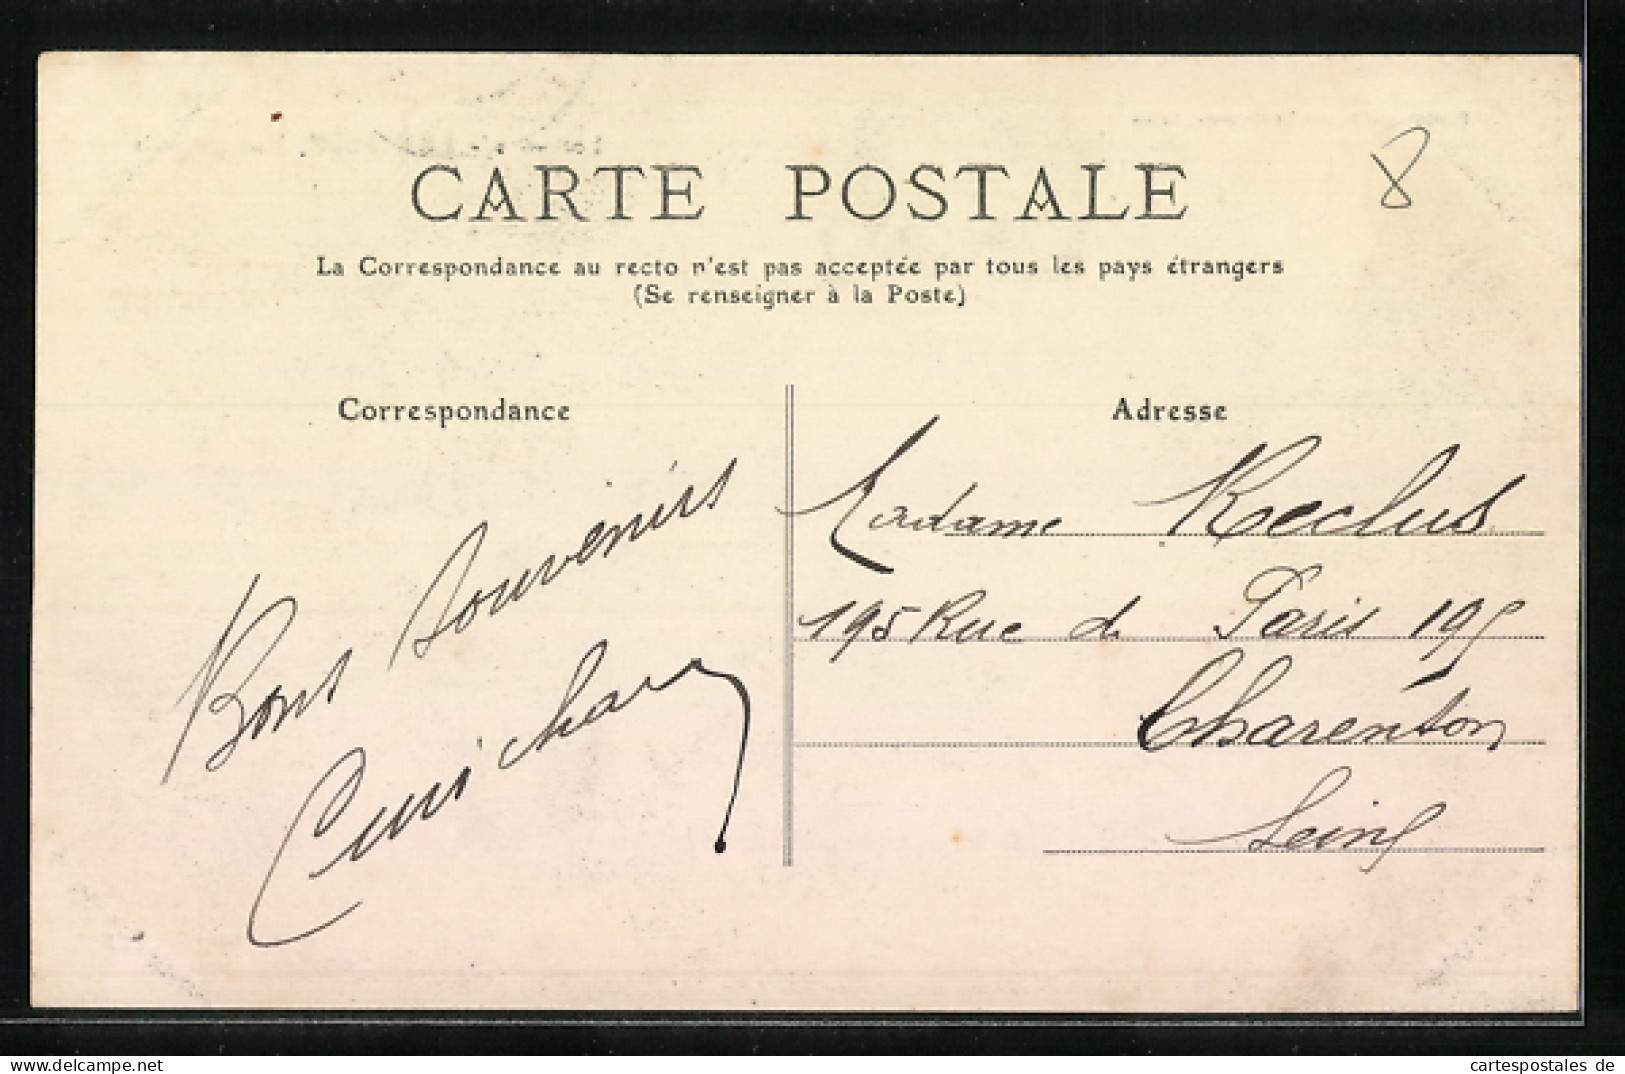 8
CARTE POSTALE
La Correspondance au recto n'est pas acceptée par tous les pays étrangers
(Se renseigner à la Poste)
Correspondance
Bons Souvenirs
Adresse
Madame Reclus
195 Rue de Paris 195
Charenton
Seine
cartespostales de